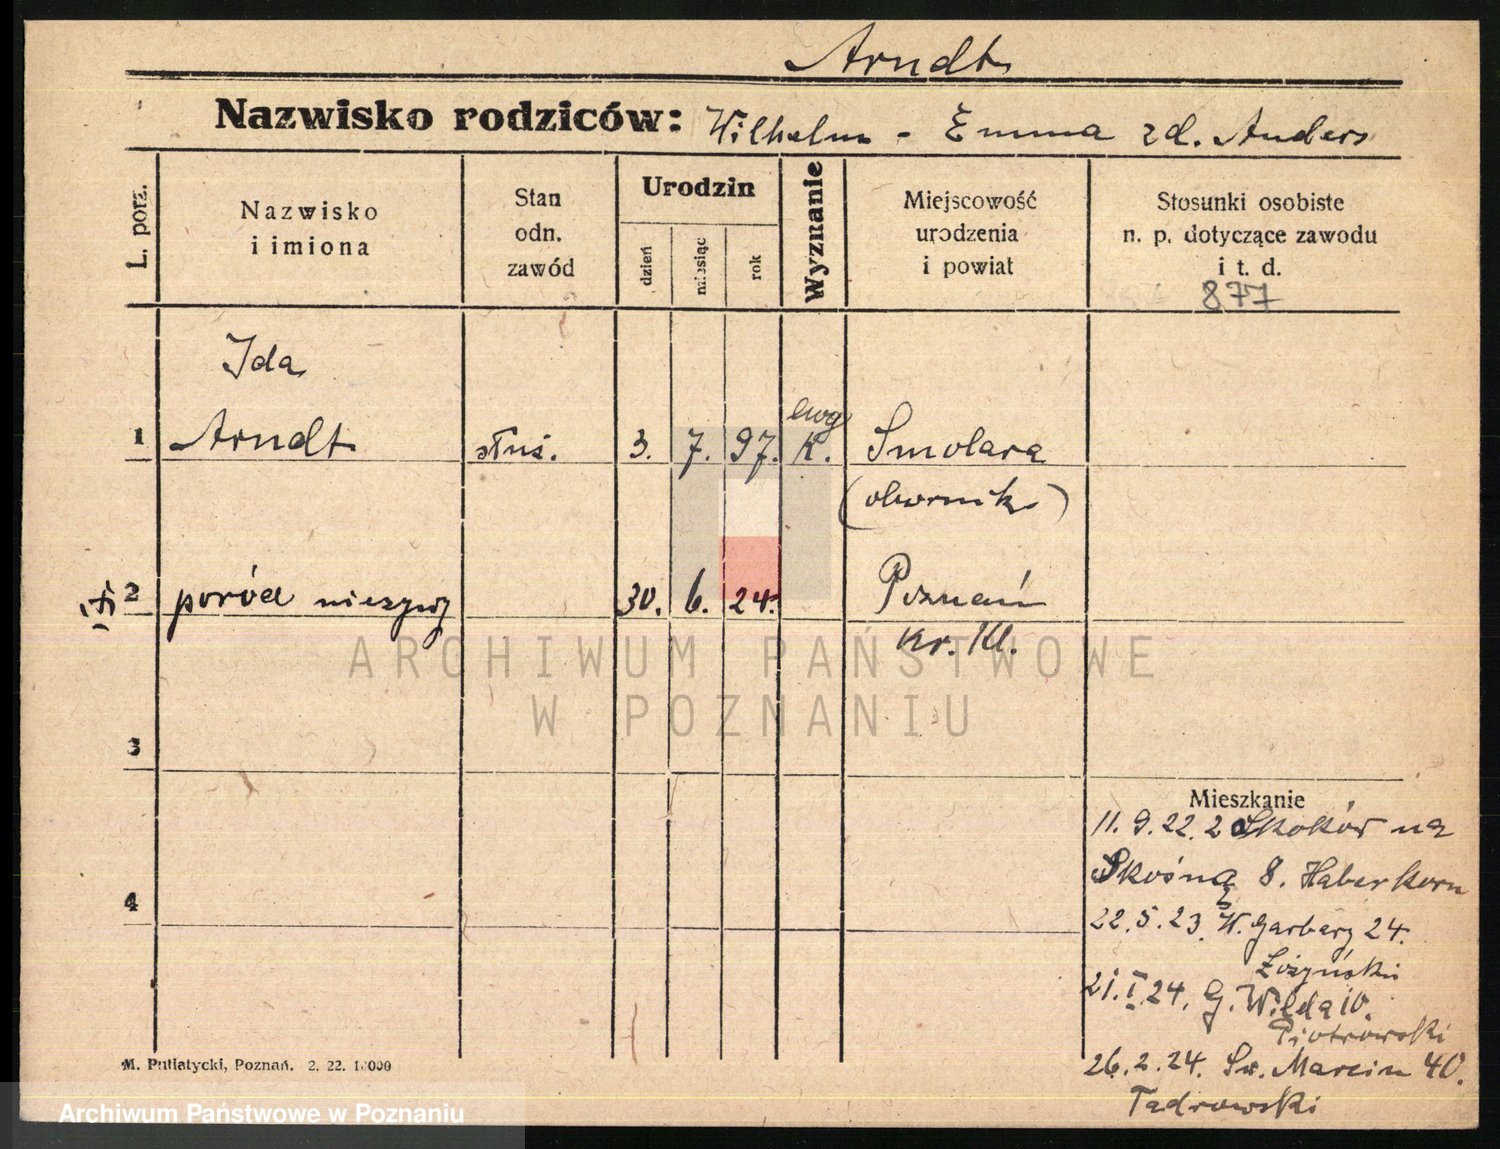 Arndt
Nazwisko rodziców: Wilhelm - Emma zd. Anders
L. porz.
Nazwisko
i imiona
Stan
odn.
zawód
Urodzin
dzień
miesiąc
rok
Wyznanie
Miejscowość
urodzenia
i powiat
Stosunki osobiste
n. p. dotyczące zawodu
i t. d.
877
Ida
ewg
1 Arndt służ. 3. 7. 97. K. Smolara
(obornik)
2 poród nieżywy 30. 6. 24. Poznań
kr. Kl.
ARCHIWUM PAŃSTWOWE
W POZNANIU
3
Mieszkanie
11. 9. 22. z Skoków na
Skośną 8. Haberkorn
4
22. 5. 23. W. Garbary 24.
21. I 24. G. Wilda 10.
Piotrowski
26. 2. 24. Św. Marcin 40.
Tadrowski
M. Putiatycki, Poznań. 2. 22.
Archiwum Państwowe w Poznaniu